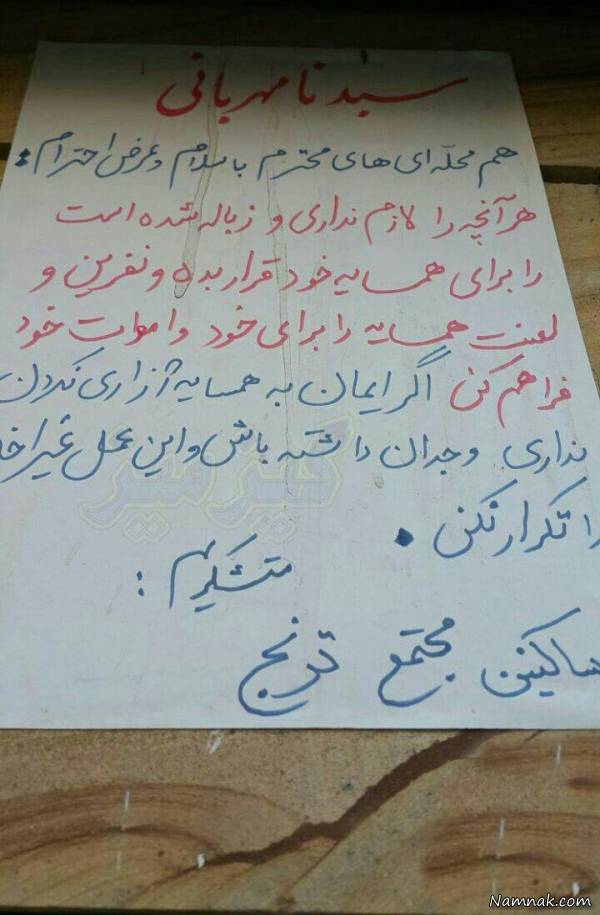 سبد نامهربانی
هم محله‌ای های محترم با سلام و عرض احترام:
هر آنچه را لازم نداری و زباله شده است
را برای همسایه خود قرار بده و نفرین و
لعنت همسایه را برای خود و اموات خود
فراهم کن اگر ایمان به همسایه آزاری نکردن
نداری وجدان داشته باش و این عمل غیر
را تکرار نکن.
متشکریم:
ساکنین مجتمع ترنج
Namnak.com